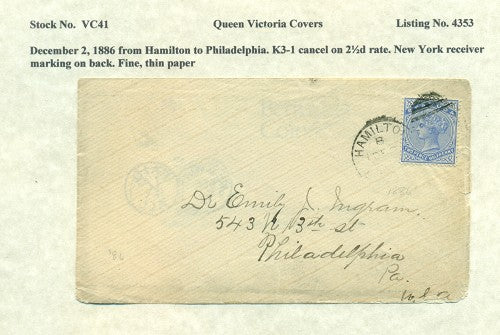 Stock No. VC41 Queen Victoria Covers Listing No. 4353
December 2, 1886 from Hamilton to Philadelphia. K3-1 cancel on 2½d rate. New York receiver
marking on back. Fine, thin paper
HAMILTON
B
1886
Dr Emily J. Ingram.
543 N 13th st
Philadelphia
Pa.
U.S.A
'86